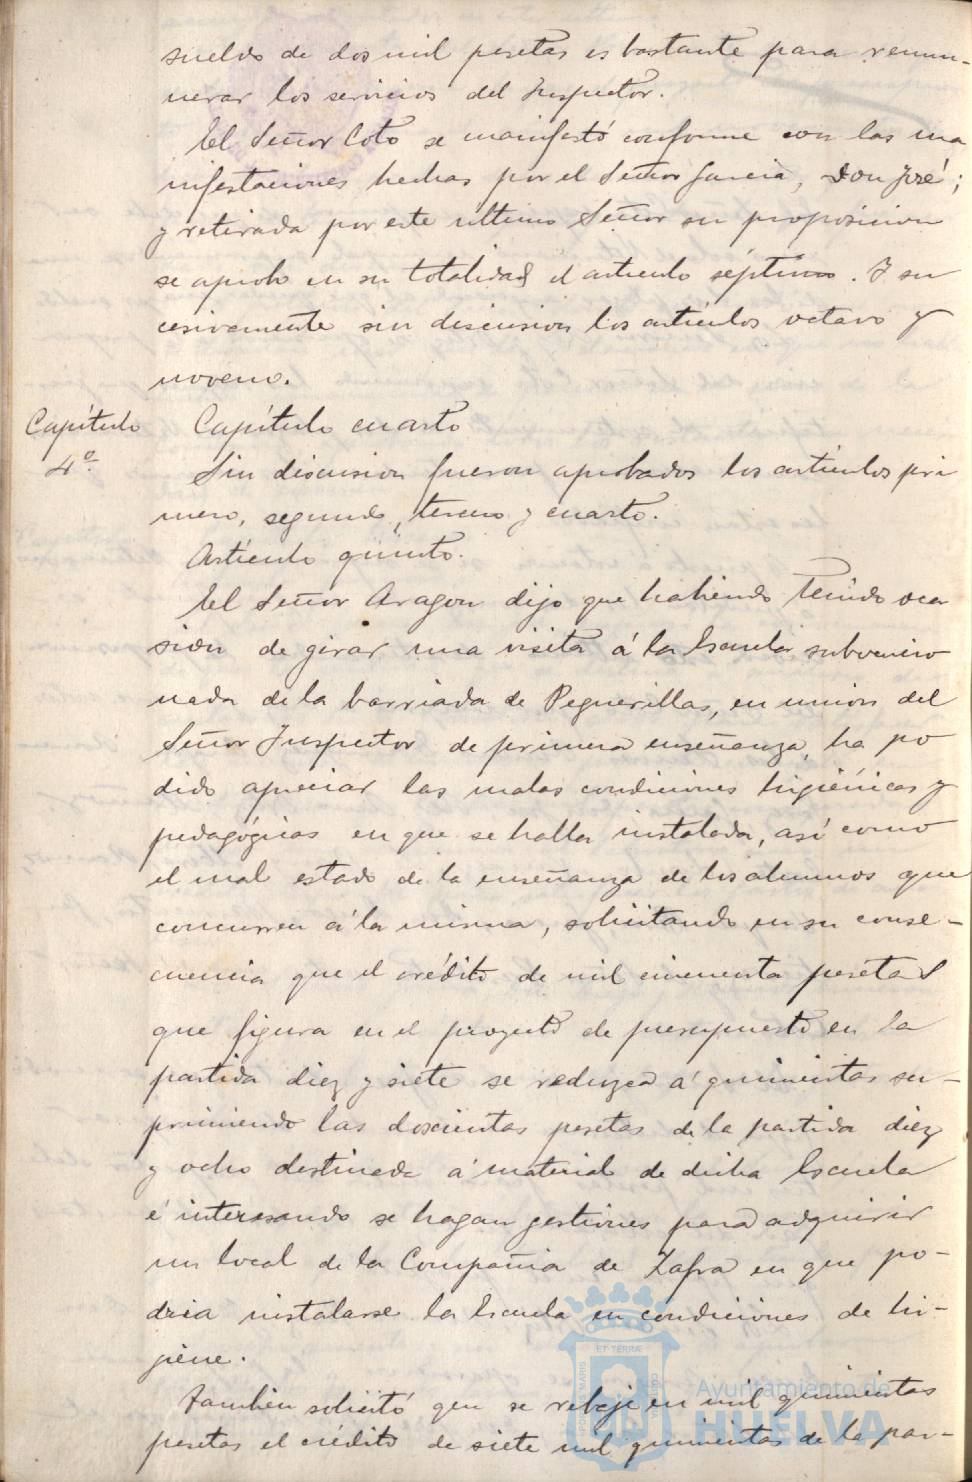 sueldo de dos mil pesetas es bastante para remu-
nerar los servicios del Inspector.
El Señor Coto se manifestó conforme con las ma
nifestaciones hechas por el Señor Garcia, Don José;
y retirada por este ultimo Señor su proposicion
se aprobo en su totalidad el articulo séptimo. Y su
cesivamente sin discusion los artículos octavo y
noveno.
Capítulo
4º
Capítulo cuarto
Sin discusion fueron aprobados los artículos pri
mero, segundo, tercero y cuarto.
Artículo quinto.
El Señor Aragon dijo que habiendo tenido oca
sion de girar una visita á la Escuela subvencio
nada de la barriada de Peguerillas, en union del
Señor Inspector de primera enseñanza, ha po
dido apreciar las malas condiciones higiénicas y
pedagógicas en que se halla instalada, así como
el mal estado de la enseñanza de los alumnos que
concurren á la misma, solicitando en su conse-
cuencia que el crédito de mil cincuenta pesetas
que figura en el proyecto de presupuesto en la
partida diez y siete se reduzca á quinientas su-
primiendo las doscientas pesetas de la partida diez
y ocho destinada á material de dicha Escuela
é interesando se hagan gestiones para adquirir
un local de la Compañia de Zafra en que po-
dria instalarse la Escuela en condiciones de hi-
giene.
Tambien solicitó que se rebaje en mil quinientas
pesetas el crédito de siete mil quinientas de la par-
Ayuntamiento de
HUELVA